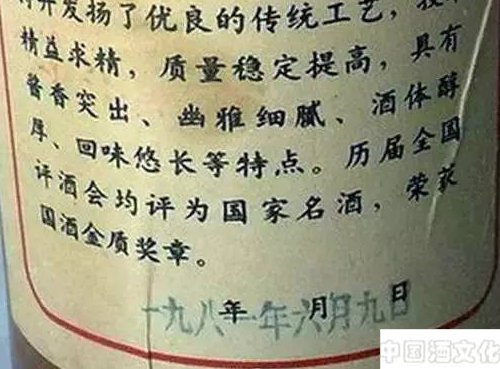 并发扬了优良的传统工艺，
精益求精，质量稳定提高，具有
酱香突出、幽雅细腻、酒体醇
厚、回味悠长等特点。历届全国
评酒会均评为国家名酒，荣获
国酒金质奖章。
一九八一年六月九日
年 月 日
中国酒文化